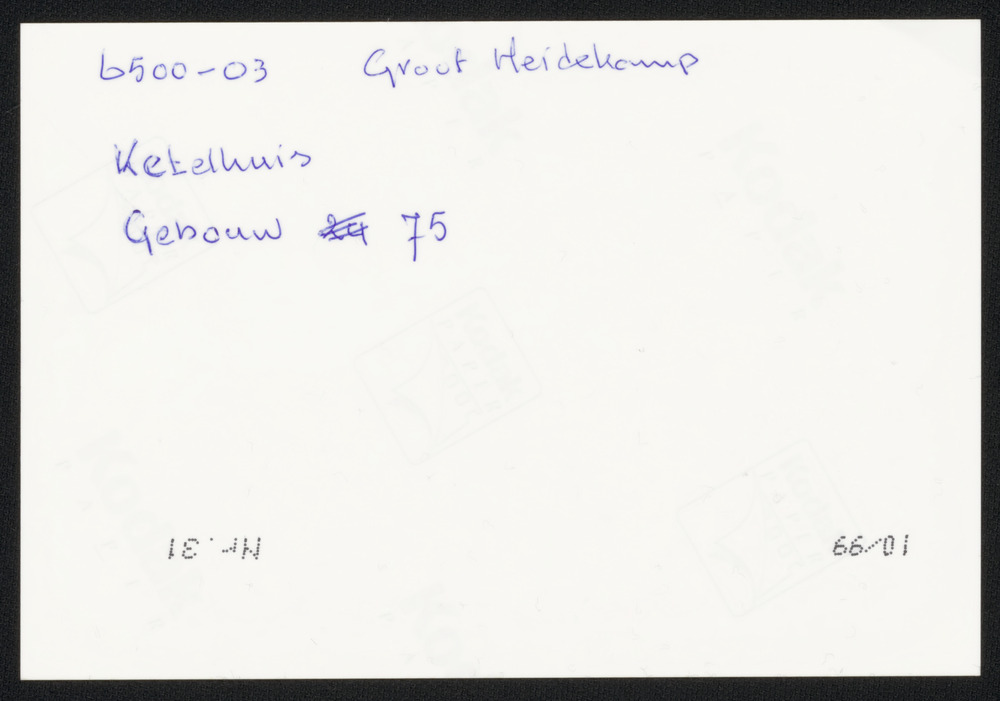 6500-03 Groot Heidekamp
Ketelhuis
Gebouw 75
Nr. 31
10/99